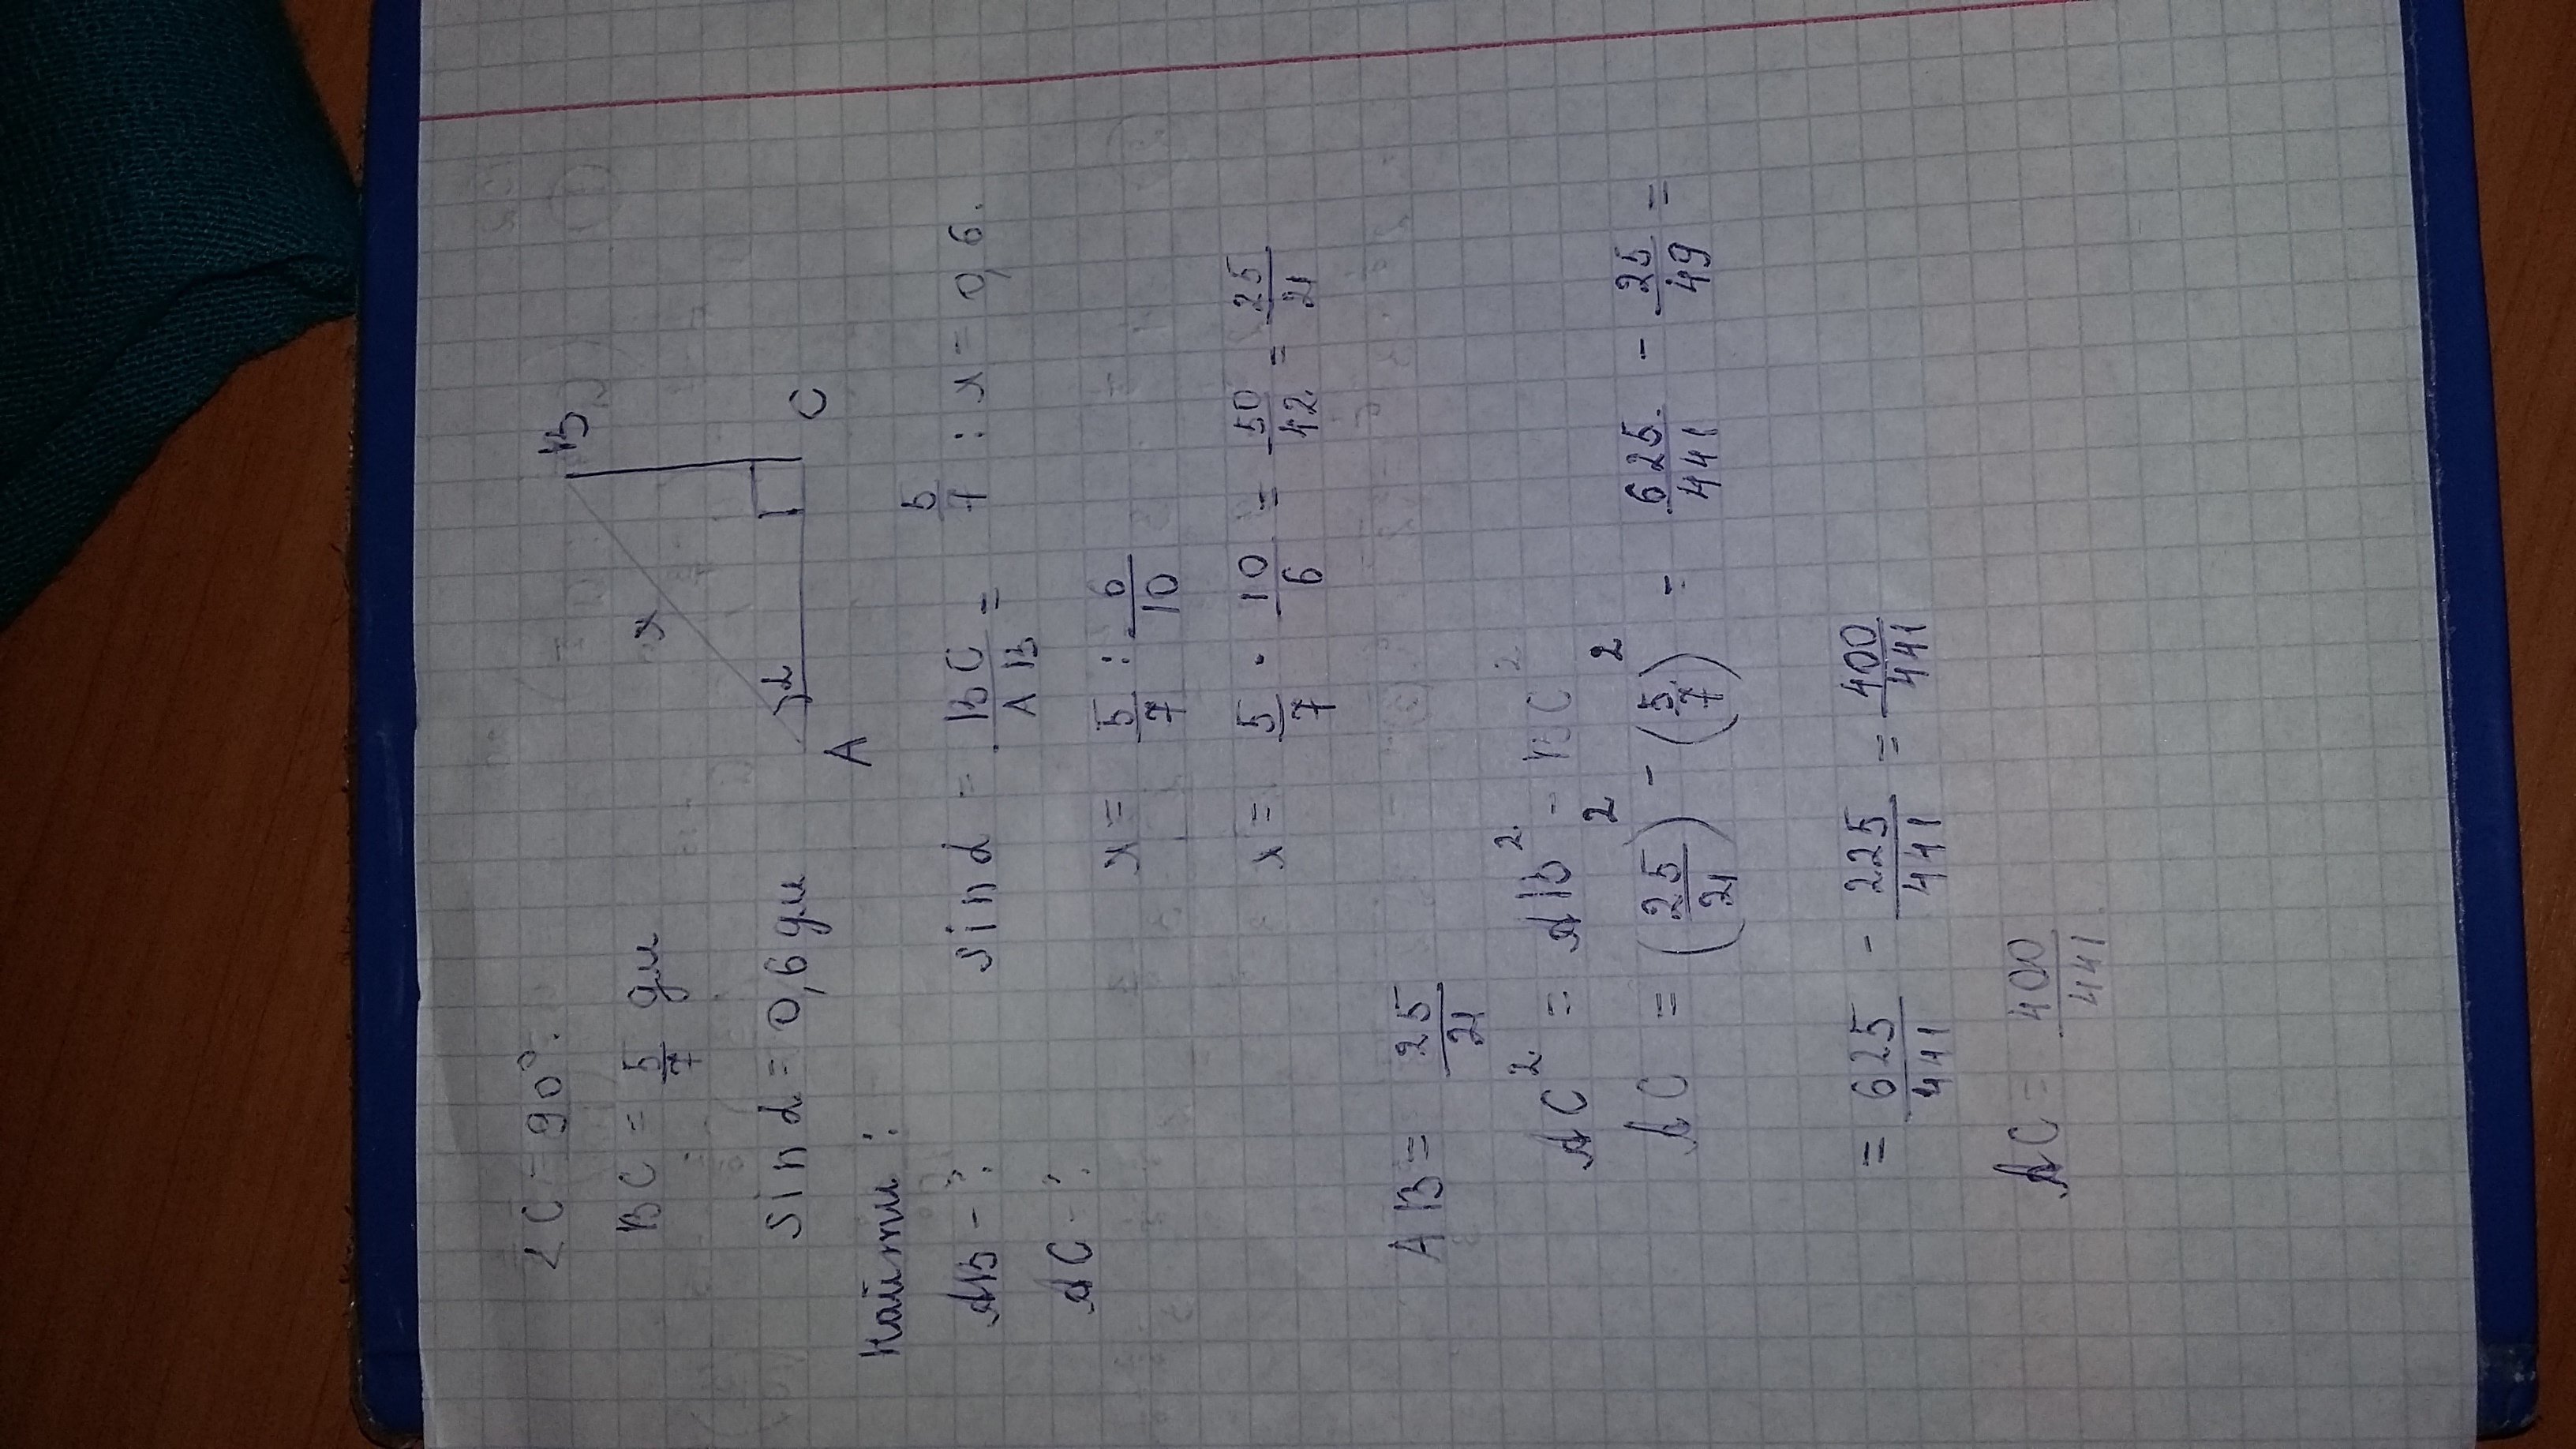 ∠C = 90°.
B
x
α
A
C
BC = 5/7 дм
sin α = 0,6 дм
Найти:
AB - ?
AC - ?
sin α = BC/AB = 5/7 : x = 0,6.
x = 5/7 : 6/10
x = 5/7 · 10/6 = 50/42 = 25/21
AB = 25/21
AC² = AB² - BC²
AC = (25/21)² - (5/7)² = 625/441 - 25/49 =
= 625/441 - 225/441 = 400/441
AC = 400/441